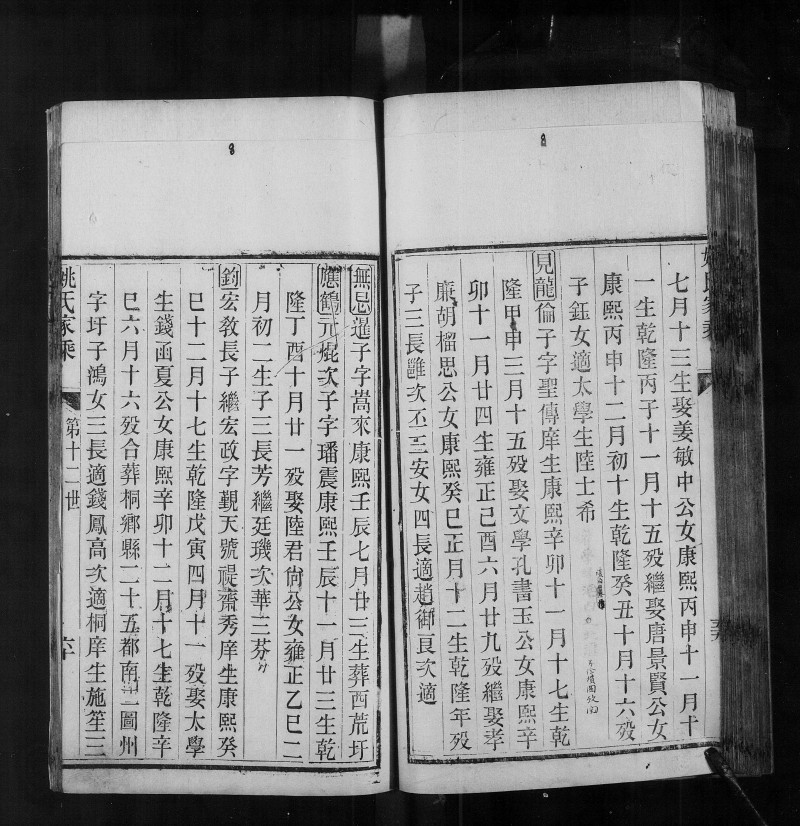 8
七月十三生娶姜敏中公女康熙丙申十一月十
一生乾隆丙子十一月十五歿繼娶唐景賢公女
康熙丙申十二月初十生乾隆癸丑十月十六歿
子鈺女適太學生陸士希
見龍倫子字聖傳庠生康熙辛卯十一月十七生乾
隆甲申三月十五歿娶文學孔書玉公女康熙辛
卯十一月廿四生雍正己酉六月廿九歿繼娶孝
廉胡榴思公女康熙癸巳正月十二生乾隆年歿
子三長雝次丕三安女四長適趙御良次適
8
無忌暹子字嵩來康熙壬辰七月廿三生葬西荒圩
應鶴元焜次子字璠震康熙壬辰十一月廿三生乾
隆丁酉十月廿一歿娶陸君尙公女雍正乙巳二
月初二生子三長芳繼廷璣次華三芬
鈞宏敎長子繼宏政字覲天號禔齋秀庠生康熙癸
巳十二月十七生乾隆戊寅四月十一歿娶太學
生錢函夏公女康熙辛卯十二月十七生乾隆辛
巳六月十六歿合葬桐鄉縣二十五都南三圖州
字圩子鴻女三長適錢鳳高次適桐庠生施笙三
姚氏家乘
第十二世